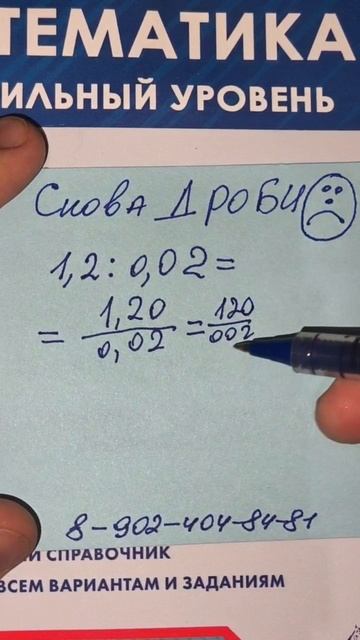 ТЕМАТИКА
ИЛЬНЫЙ УРОВЕНЬ
Снова ДРОБИ
1,2 : 0,02 =
= 1,20/0,02 = 120/002
8-902-404-84-81
СПРАВОЧНИК
ВСЕМ ВАРИАНТАМ И ЗАДАНИЯМ